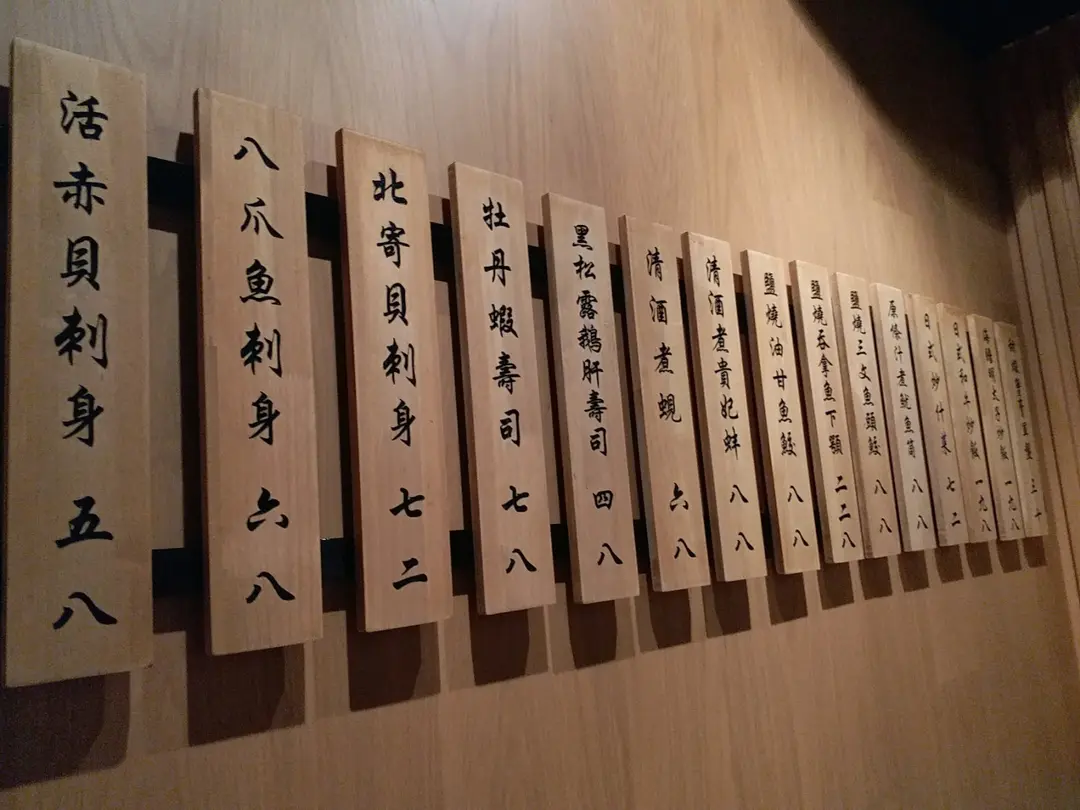 活赤貝刺身 五八
八爪魚刺身 六八
北寄貝刺身 七二
牡丹蝦壽司 七八
黑松露鵝肝壽司 四八
清酒煮蜆 六八
清酒煮貴妃蚌 八八
鹽燒油甘魚鮫 八八
鹽燒吞拿魚下顎 二二八
鹽燒三文魚頭鮫 八八
原條汁煮魷魚筒 八八
日式炒什菜 七二
日式和牛炒飯 一九八
太子炒飯 一九八